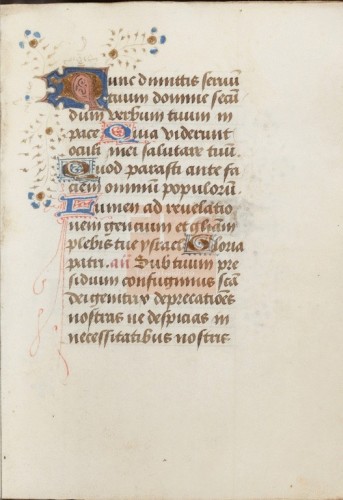 Nunc dimittis servū
tuum domine secū
dum verbum tuum in
pace Quia viderunt
oculi mei salutare tuū.
Quod parasti ante fa
ciem omniū populorū.
Lumen ad revelatio
nem gentium et gliam
plebis tue ysrael Gloria
patri. aū Sub tuum pre
sidium confugimus scā
dei genitrix deprecatiōes
nostras ne despicias in
necessitatibus nostris